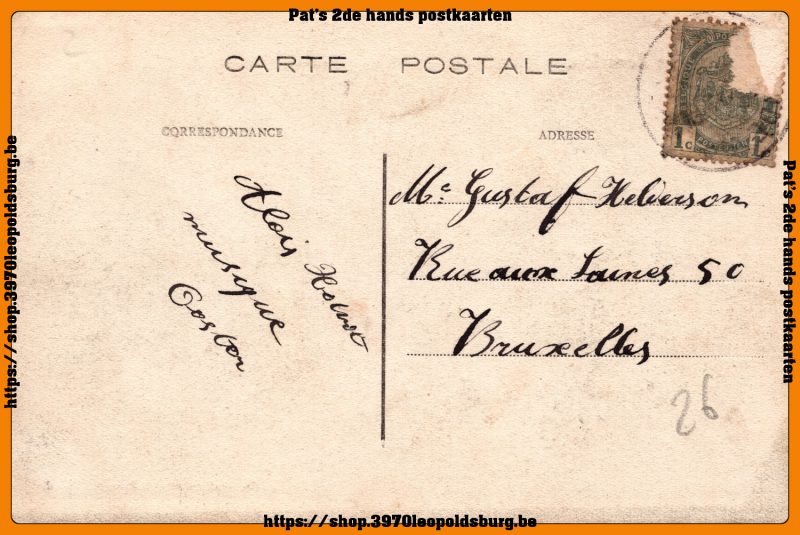 Pat's 2de hands postkaarten
CARTE POSTALE
CORRESPONDANCE
ADRESSE
1 C 1
Alois
musique
Mr Gustaf Helderson
Rue aux Laines 50
Bruxelles
26
https://shop.3970leopoldsburg.be
Pat's 2de hands postkaarten
https://shop.3970leopoldsburg.be